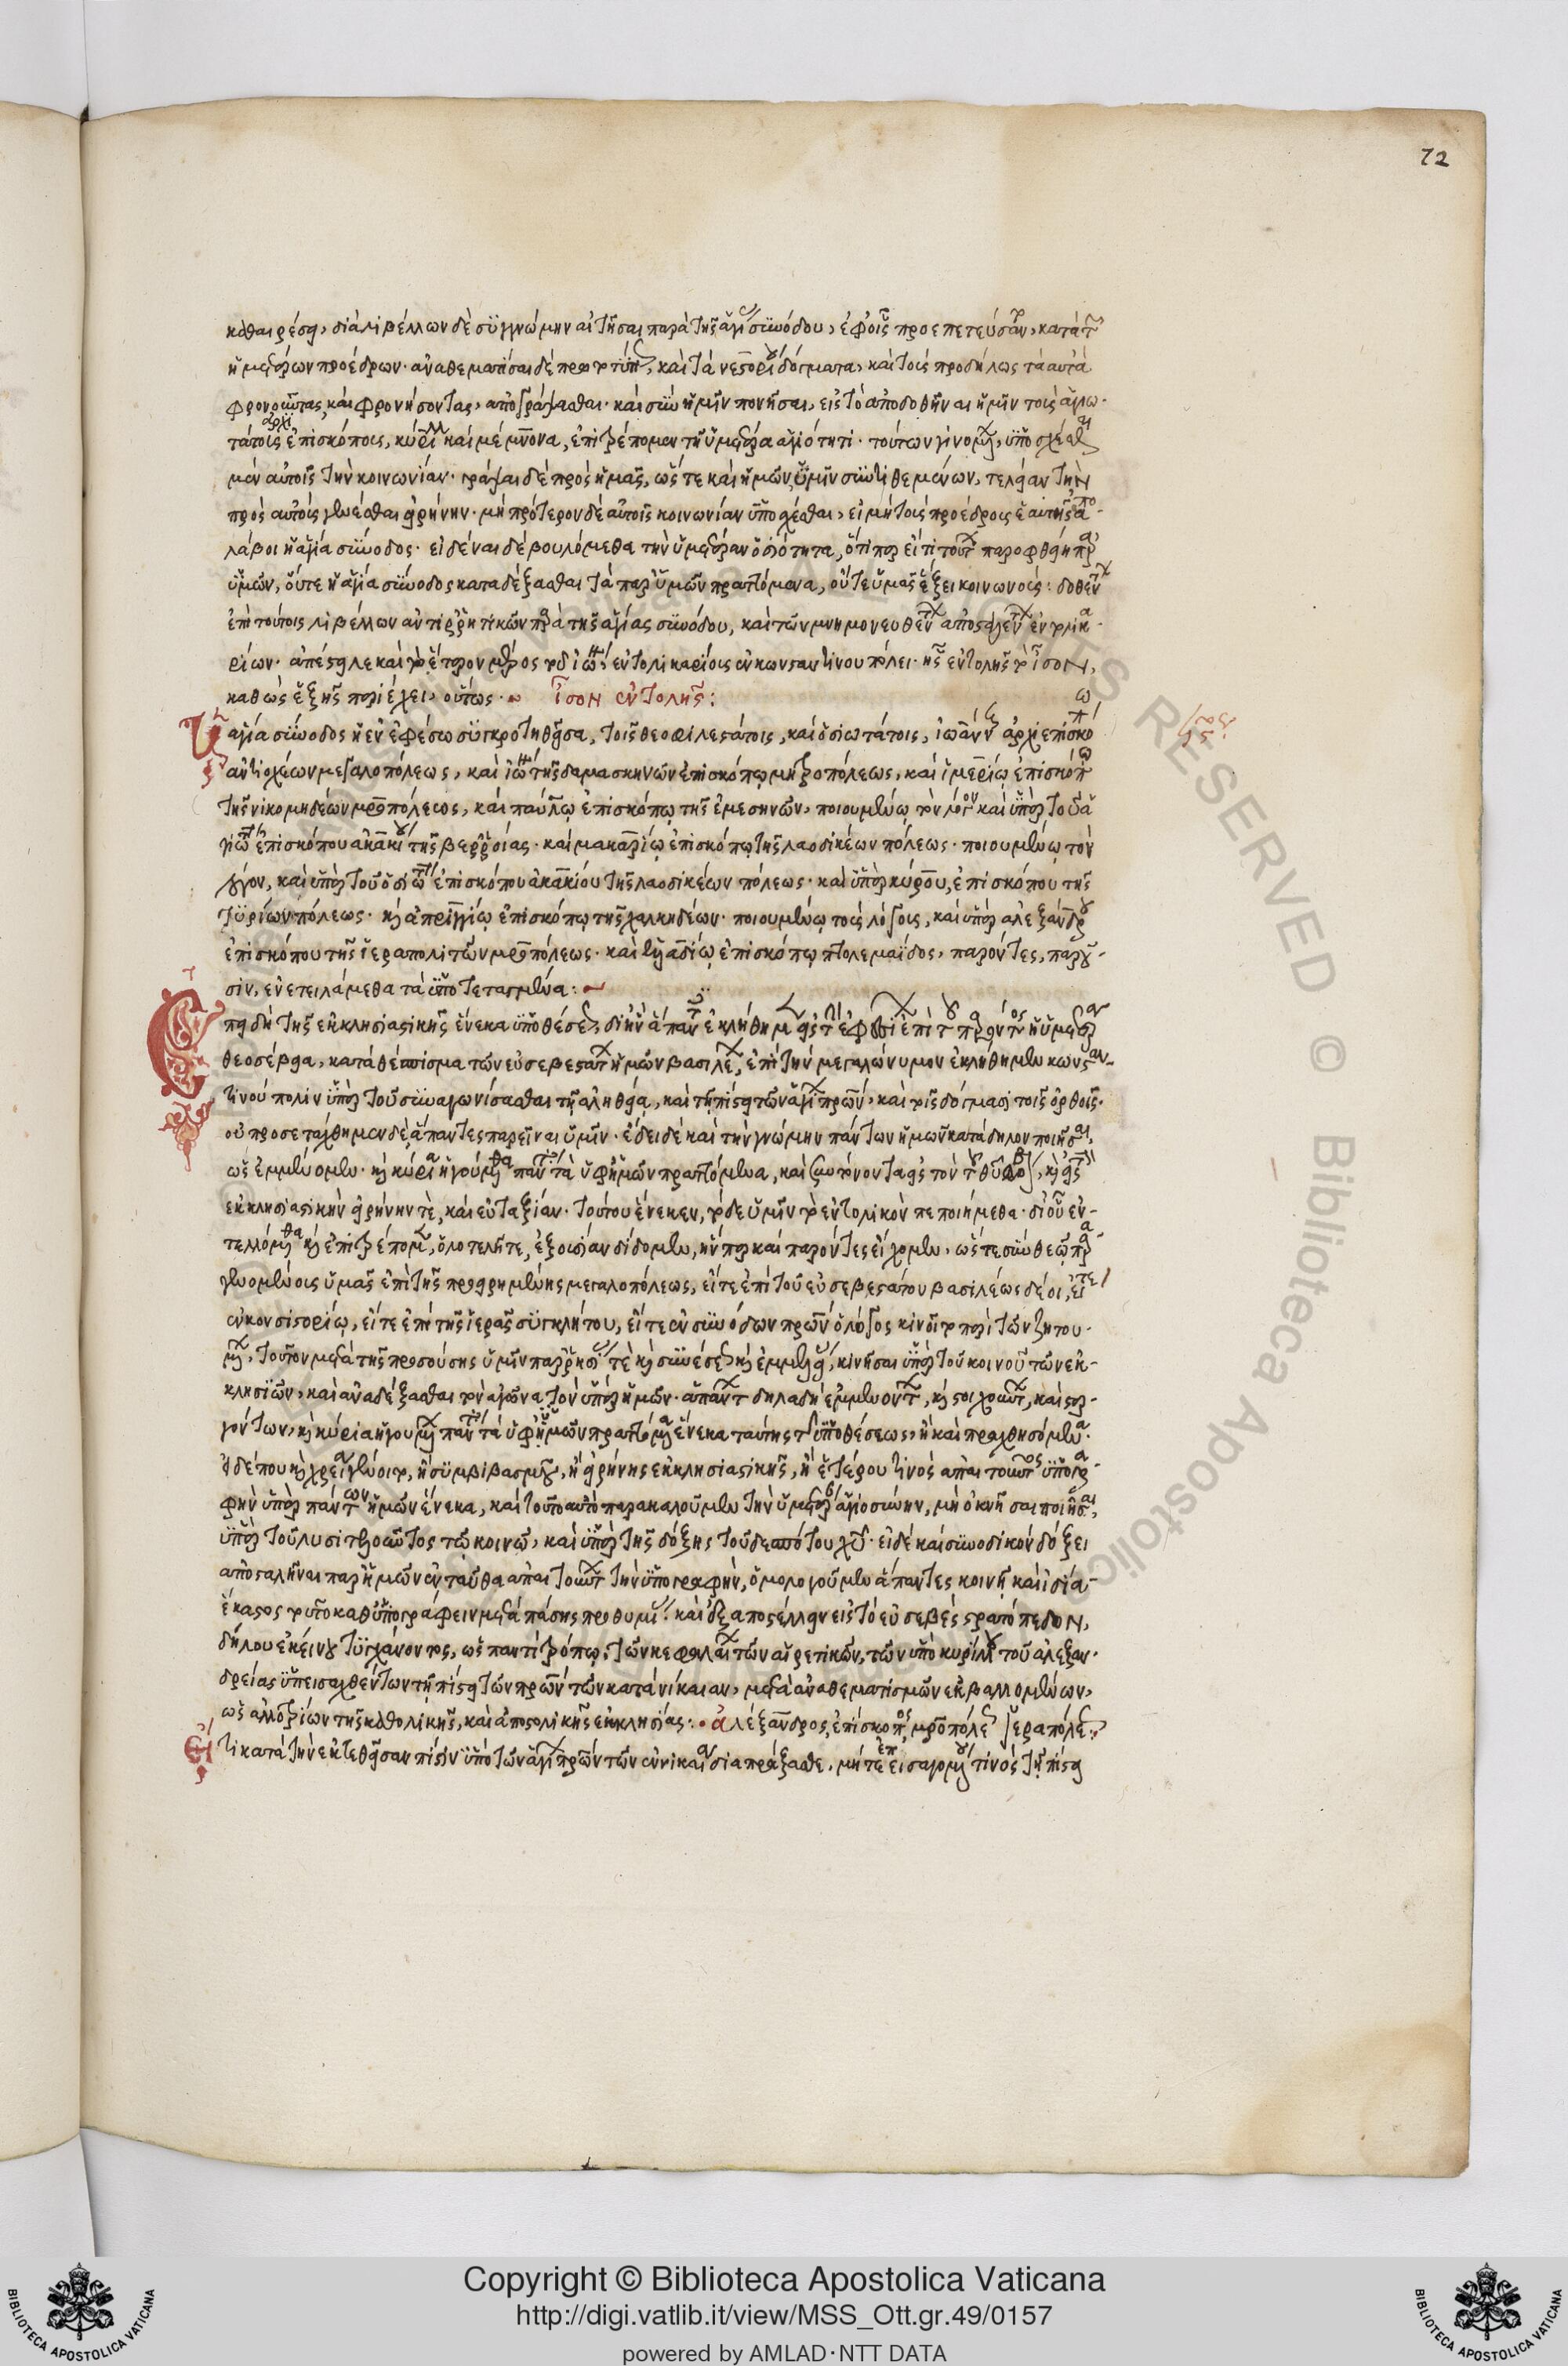 72
καθαιρέσει, διαλιβέλλων δὲ συγγνώμην αἰτῆσαι παρὰ τῆς ἁγί συνόδου, ἐφ οἷς προεπετεύσαν, κατὰ τ
ἡμετέρων προέδρων. ἀναθεματίσαι δὲ καὶ τὰ νεστορί δόγματα, καὶ τοὺς προδήλως τὰ αυτὰ
φρονοῦντας, καὶ φρονήσοντας, ἀπογράψασθαι. καὶ σὺν ἡμῖν πονῆσαι, εἰς τὸ ἀποδοθῆναι ἡμῖν τοὺς ἁγιω
τάτοις ἐπισκόποις, κύριλλ καὶ μέμνονα, ἐπιτρέπομεν τῇ ὑμετέρα ἁγιότητι. τούτων γινομ, ὑποσχέσθ
μὲν αὐτοῖς τὴν κοινωνίαν. γράψαι δὲ πρὸς ἡμᾶς, ὥστε καὶ ἡμῶν ὑμῖν συντιθεμένων, τελείαν τὴν
πρὸς αὐτοὺς γενέσθαι εἰρήνην. μὴ πρότερον δὲ αὐτοῖς κοινωνίαν ὑποσχέσθαι, εἰ μὴ τοὺς προέδρους ἑαυτῆς ἀπο
λάβοι ἡ ἁγία σύνοδος. εἰδέναι δὲ βουλόμεθα τὴν ὑμετέραν ὁσιότητα, ὅτιπερ εἴ τι τούτ παροφθείη παρ
ὑμῶν, οὔτε ἡ ἁγία σύνοδος καταδέξασθαι τὰ παρ ὑμῶν πραττόμενα, οὔτε ὑμᾶς ἕξει κοινωνούς: δοθέντ
ἐπὶ τούτοις λιβέλλων ἀντιρρητικῶν παρὰ τῆς ἁγίας συνόδου, καὶ τῶν μνημονευθέντ ἀποσταλέντ ἐν
ρίων. ἀπέστειλε καὶ τὸ ἕτερον μέρος τοῦ ἰω, ἐντολικαρίους ἐν κωνσταντίνου πόλει. ἧς ἐντολῆς τὸ ἴσον,
καθὼς ἑξῆς περιέχει, οὕτως. ἴσον ἐντολῆς:
ἁγία σύνοδος ἡ ἐν ἐφέσω συγκροτηθεῖσα, τοῖς θεοφιλεστάτοις, καὶ ὁσιωτάτοις, ἰωάνν ἀρχιεπισκόπω
ἀντιοχέων μεγαλοπόλεως, καὶ ἰω τῆς δαμασκηνῶν ἐπισκόπῳ μητροπόλεως, καὶ ἱμερίῳ ἐπισκόπω
τῆς νικομηδέων μροπόλεως, καὶ παύλῳ ἐπισκόπῳ τῆς ἐμεσηνῶν, ποιουμένῳ τὸν λόγον καὶ ὑπὲρ τοῦ ἁ
γιωτ ἐπισκόπου ἀκακίου τῆς βερροίας. καὶ μακαρίῳ ἐπισκόπῳ τῆς λαοδικέων πόλεως. ποιουμένῳ τὸν
λόγον, καὶ ὑπὲρ τοῦ ὁσιωτ ἐπισκόπου ἀκακίου τῆς λαοδικέων πόλεως. καὶ ὑπὲρ κύρου, ἐπισκόπου τῆς
τυρίων πόλεως. κ ἀπριγγίῳ ἐπισκόπῳ τῆς χαλκηδέων. ποιουμένῳ τοὺς λόγους, καὶ ὑπὲρ ἀλεξάνδρου
ἐπισκόπου τῆς ἱεραπολιτῶν μροπόλεως. καὶ ἑλλαδίῳ ἐπισκόπῳ πτολεμαΐδος, παρόντες, παρου
σιν, ἐνετειλάμεθα τὰ ὑποτεταγμένα:
πειδὴ τῆς ἐκκλησιαστικῆς ἕνεκα ὑποθέσεως, δι ἣν ἅπαντες ἐκλήθημεν εἰς τὴν
θεοσέβεια, κατὰ θέσπισμα τῶν εὐσεβεστάτ ἡμῶν βασιλέ, ἐπὶ τὴν μεγαλώνυμον ἐκλήθημεν κωνσταν
τίνου πόλιν ὑπὲρ τοῦ συναγωνίσασθαι τῇ ἀληθείᾳ, καὶ τῇ πίστει τῶν ἁγί πρων, καὶ τοῖς δόγμασι τοῖς ὀρθοῖς.
οὐ προσετάχθημεν δὲ ἅπαντες παρεῖναι ὑμῖν. ἔδει δὲ καὶ τὴν γνώμην πάντων ἡμῶν κατάδηλον ποιῆσαι,
ὡς ἐμμένομεν. κ κύρια ἡγούμεθα πάντα τὰ ὑφ ἡμῶν πραττόμενα, καὶ συντείνοντα εἰς τὸν τοῦ θῦ φόβον, κ εἰς τὴν
ἐκκλησιαστικὴν εἰρήνην τὲ, καὶ εὐταξίαν. τούτου ἕνεκεν, τόδε ὑμῖν τὸ ἐντολικὸν πεποιήμεθα. δι οὗ ἐν
τελλόμεθα κ ἐπιτρέπομεν, ὁλοτελῆ τε, ἐξουσίαν δίδομεν, ἥνπερ καὶ παρόντες εἴχομεν, ὥστε σὺν θεῷ παρα
γενομένους ὑμᾶς ἐπὶ τῆς προειρημένης μεγαλοπόλεως, εἴτε ἐπὶ τοῦ εὐσεβεστάτου βασιλέως δέοι, εἴτε
ἐν κονσιστορίῳ, εἴτε ἐπὶ τῆς ἱερᾶς συγκλήτου, εἴτε ἐν συνόδων πρων ὁ λόγος κινοῖτο περὶ τῶν ζητου
μ, τοῦτον μετὰ τῆς προσούσης ὑμῖν παρρησί τὲ κ συνέσεως κ ἐμμελεί, κινῆσαι ὑπὲρ τοῦ κοινοῦ τῶν ἐκ
κλησιῶν, καὶ ἀναδέξασθαι τὸν ἀγῶνα τὸν ὑπὲρ ἡμῶν. ἁπάντ δηλαδὴ ἐμμενόντ, κ στοιχούντ, καὶ στερ
γόντων, κ κύρια ἡγουμ πάντα τὰ ὑφ ἡμῶν πραττόμενα ἕνεκα ταύτης τ ὑποθέσεως, ἢ καὶ πραχθησόμενα.
εἰ δέ που κ χρεία γένοιτο, ἢ συμβιβασμοῦ, ἢ εἰρήνης ἐκκλησιαστικῆς, ἢ ἑτέρου τινὸς ἀπαιτοῦντος ὑπογρα
φὴν ὑπὲρ πάντων ἡμῶν ἕνεκα, καὶ τοῦτο αὐτὸ παρακαλοῦμεν τὴν ὑμετέρ ἁγιοσύνην, μὴ ὀκνῆσαι ποιῆσαι,
ὑπὲρ τοῦ λυσιτελοῦντος τῷ κοινῷ, καὶ ὑπὲρ τῆς δόξης τοῦ δεσπότου χῦ. εἰ δὲ καὶ συνοδικὸν δόξει
ἀποσταλῆναι παρ ἡμῶν ἐνταῦθα ἀπαιτοῦντ τὴν ὑπογραφὴν, ὁμολογοῦμεν ἅπαντες κοινῇ καὶ ἰδία
ἕκαστος τοῦτο καθυπογράφειν μετὰ πάσης προθυμί. καὶ ἀποστέλλειν εἰς τὸ εὐσεβὲς στρατόπεδον,
δήλου ἐκείνου τυγχάνοντος, ὡς παντὶ τρόπῳ, τῶν κεφαλαί τῶν αἱρετικῶν, τῶν ὑπὸ κυρίλλ τοῦ ἀλεξαν
δρείας ὑπεισαχθέντων τῇ πίστει τῶν πρων τῶν κατὰ νίκαιαν, μετὰ ἀναθεματισμῶν ἐκβαλλομένων,
ὡς ἀλλοτρίων τῆς καθολικῆς, καὶ ἀποστολικῆς ἐκκλησίας: ἀλέξανδρος, ἐπίσκοπος, μροπόλεως ἱεραπόλεως
τι κατὰ τὴν ἐκτεθεῖσαν πίστιν ὑπὸ τῶν ἁγί πρων τῶν ἐν νικαία διαπράξασθε, μήτε ἐπεισαγομένου τινὸς τῇ πίστει
Copyright © Biblioteca Apostolica Vaticana
http://digi.vatlib.it/view/MSS_Ott.gr.49/0157
powered by AMLAD·NTT DATA
BIBLIOTECA APOSTOLICA VATICANA
BIBLIOTECA APOSTOLICA VATICANA